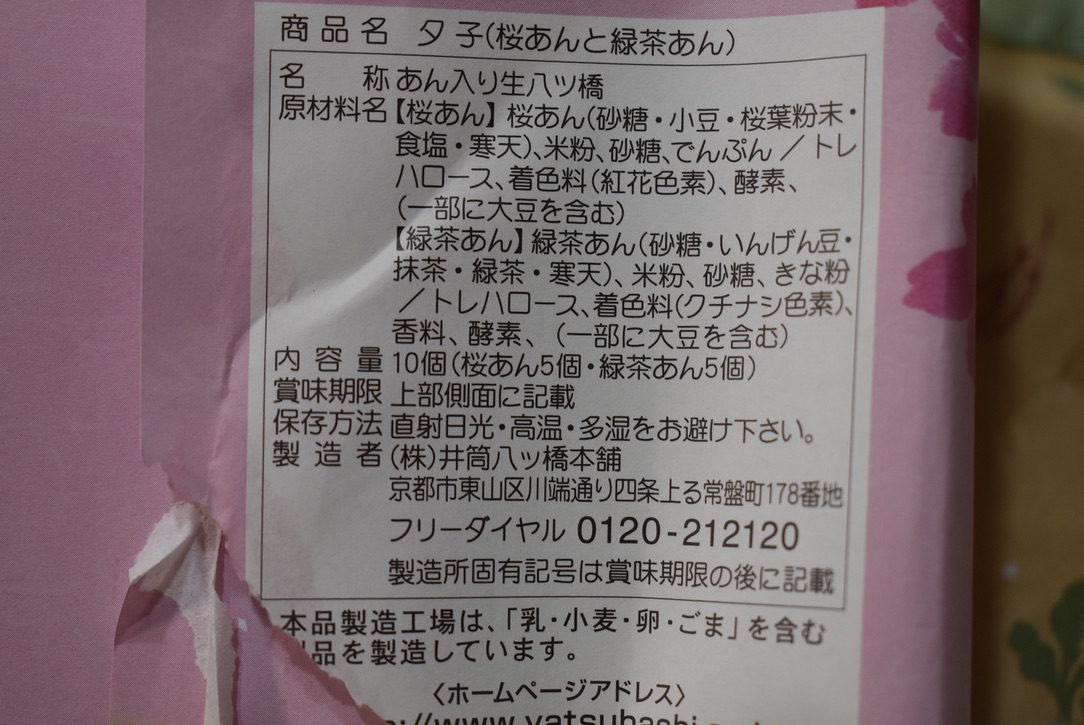 商品名 夕子(桜あんと緑茶あん)
名称 あん入り生八ツ橋
原材料名【桜あん】桜あん(砂糖・小豆・桜葉粉末・
食塩・寒天)、米粉、砂糖、でんぷん／トレ
ハロース、着色料(紅花色素)、酵素、
(一部に大豆を含む)
【緑茶あん】緑茶あん(砂糖・いんげん豆・
抹茶・緑茶・寒天)、米粉、砂糖、きな粉
／トレハロース、着色料(クチナシ色素)、
香料、酵素、(一部に大豆を含む)
内容量 10個(桜あん5個・緑茶あん5個)
賞味期限 上部側面に記載
保存方法 直射日光・高温・多湿をお避け下さい。
製造者 (株)井筒八ッ橋本舗
京都市東山区川端通り四条上る常盤町178番地
フリーダイヤル 0120-212120
製造所固有記号は賞味期限の後に記載
本品製造工場は、「乳・小麦・卵・ごま」を含む
品を製造しています。
〈ホームページアドレス〉
://www.yatsuhashi